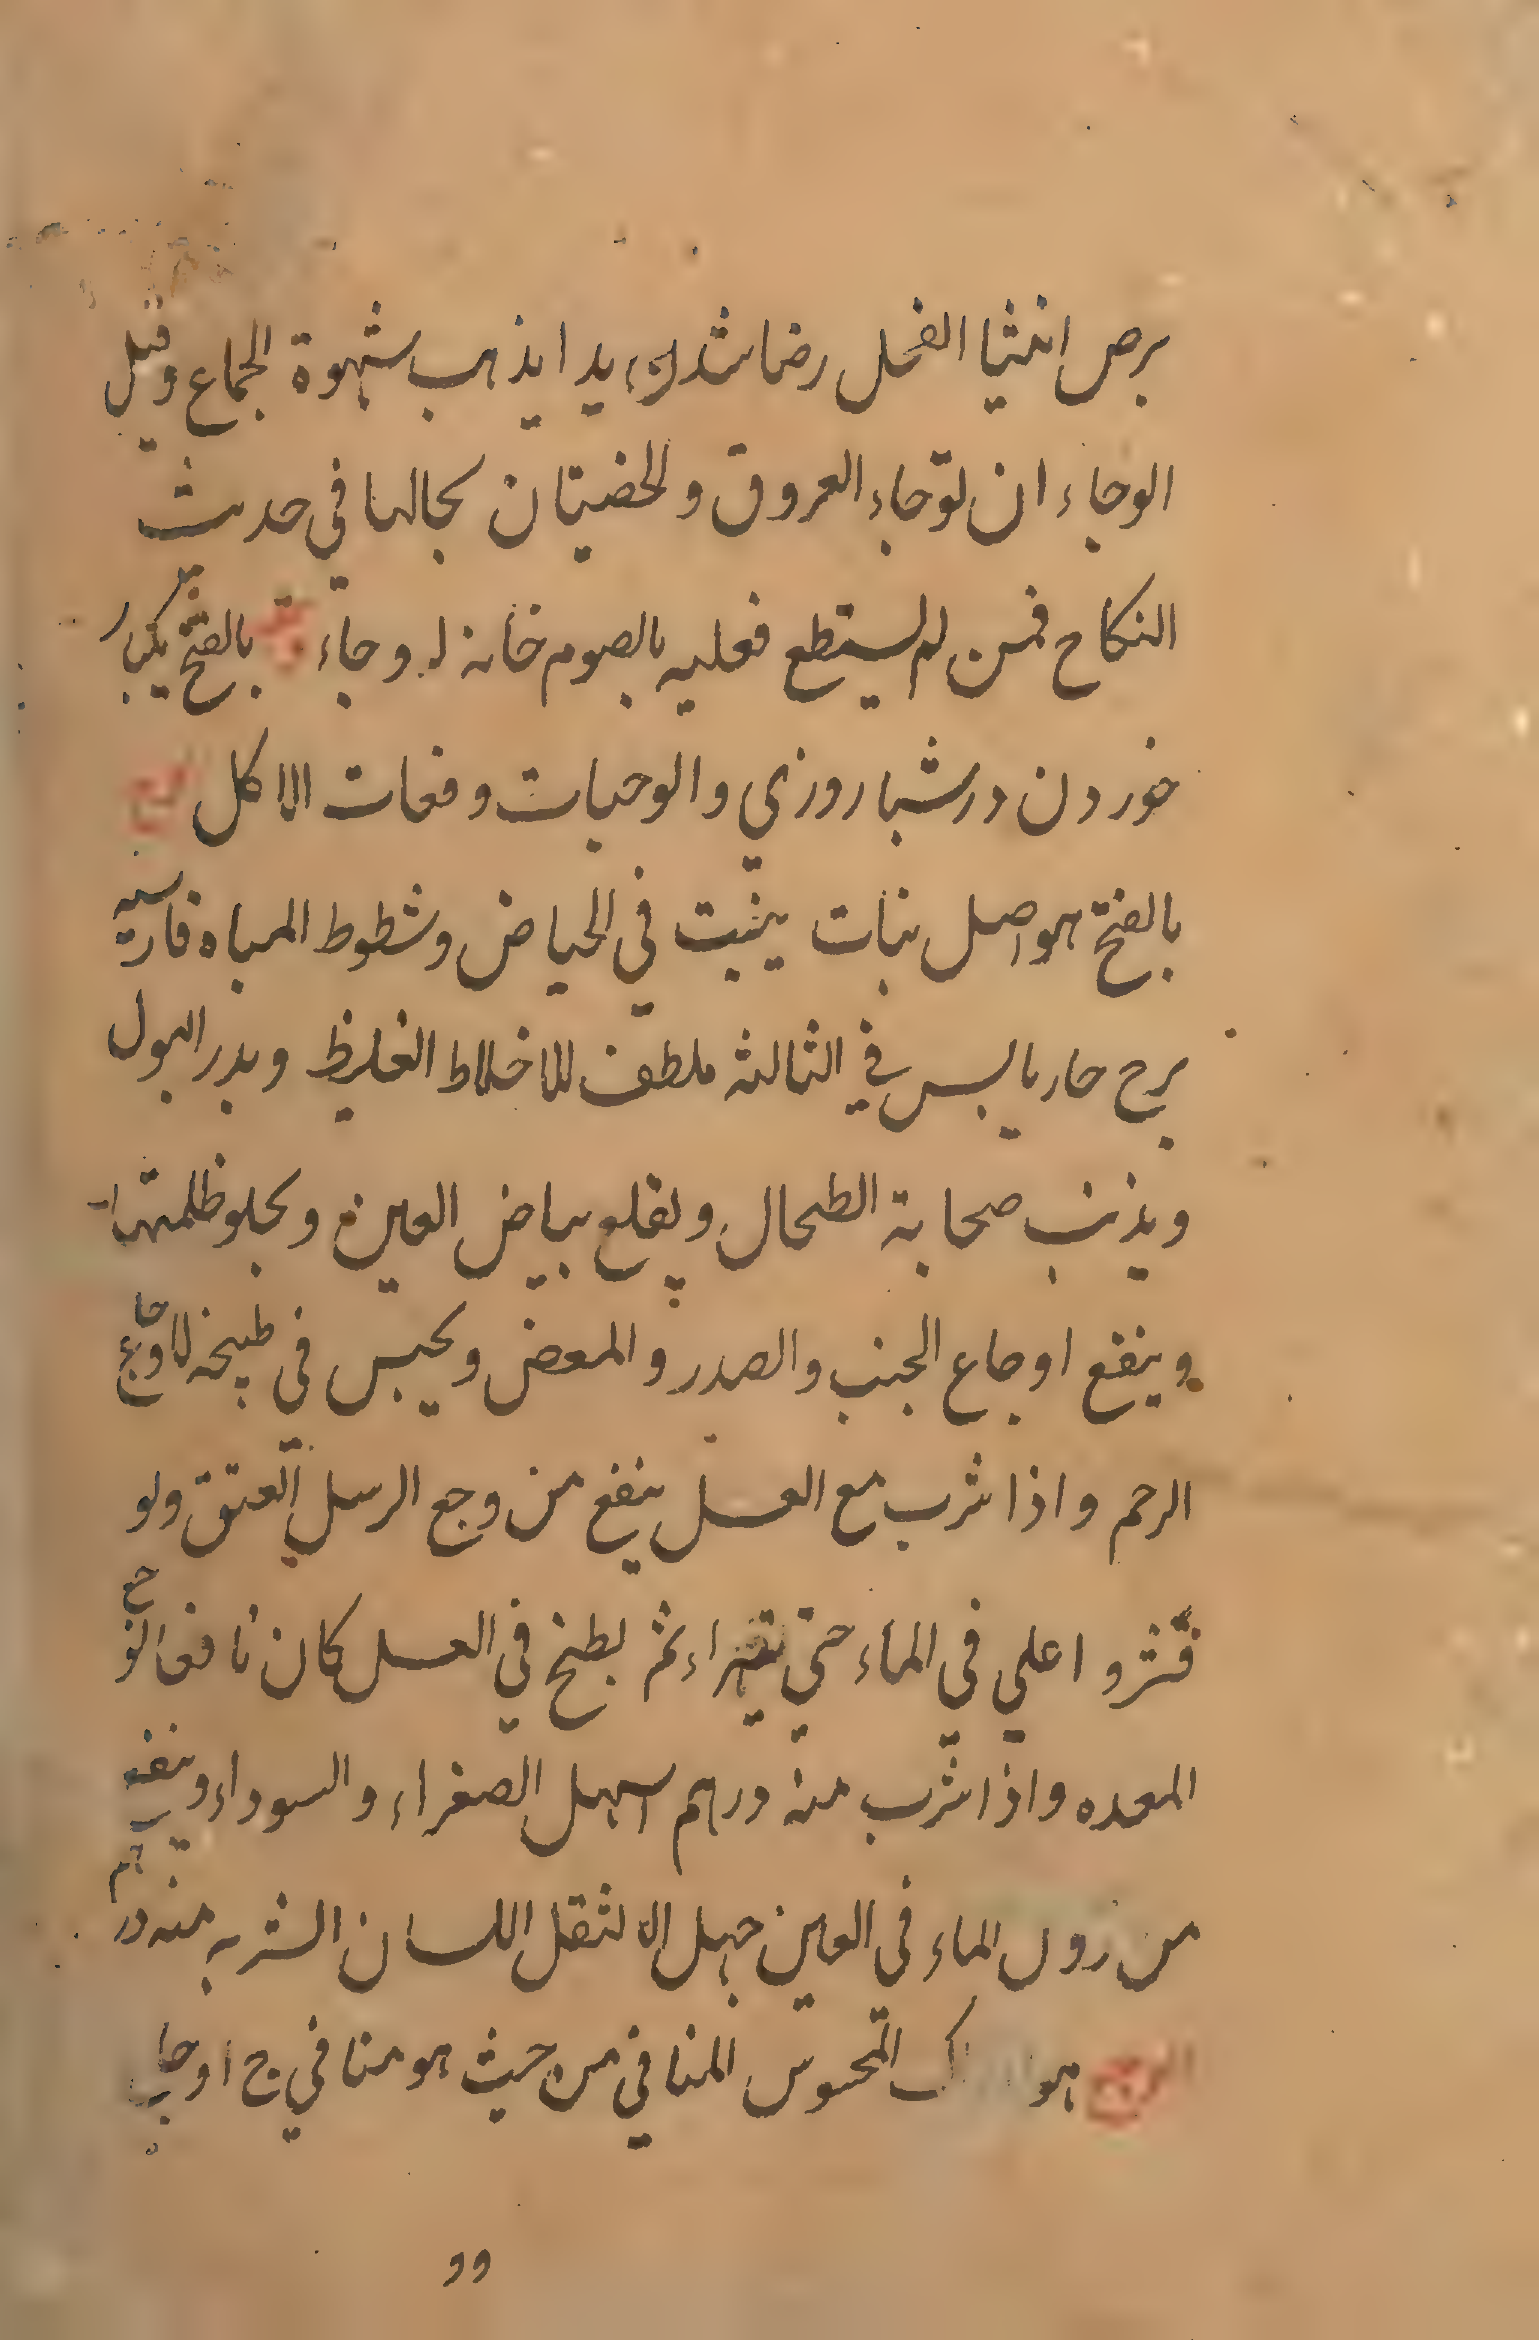 برص انثيا الفحل رضا شديدا يذهب شهوة الجماع وقيل
الوجاء ان توجاء العروق والخصيتان بحالها في حديث
النكاح فمن لم يستطع فعليه بالصوم فانه له وجاء بالفتح يكبار
خوردن در شبا روزي والوجبات وقعات الاكل
بالفتح هو اصل نبات ينبت في الحياض وشطوط المياه فارسيه
برج حار يابس في الثالثة ملطف للاخلاط الغليظ ويدر البول
ويذيب صحابة الطحال ويقلع بياض العين ويجلو ظلمتها
وينفع اوجاع الجنب والصدر والمعض ويحبس في طبيخه لاوجاع
الرحم واذا شرب مع العسل ينفع من وجع الرسل العتق ولو
قشر و اعلي في الماء حتي يتهراء ثم يطبخ في العسل كان نافعا لوجع
المعده واذا شرب منه درهم اسهل الصفراء والسوداء وينفع
من نزول الماء في العين جهل الا لثقل اللسان الشربه منه درهم
الوجع هو المحسوس المنافي من حيث هو منافي ج اوجاع